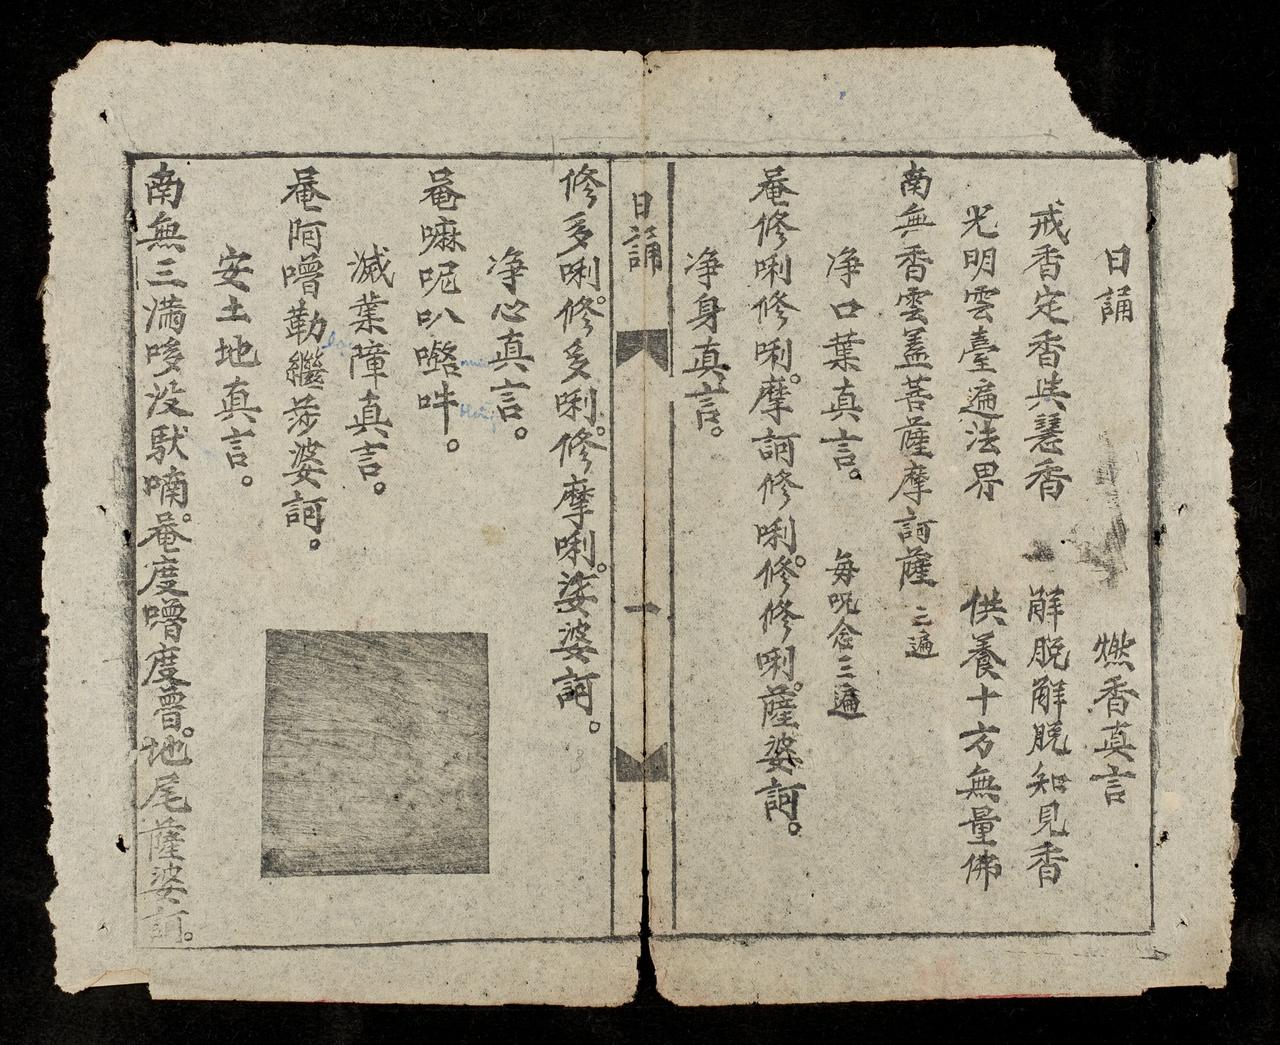 日誦 燃香真言
戒香定香與慧香 解脱解脱知見香
光明雲臺遍法界 供養十方無量佛
南無香雲蓋菩薩摩訶薩 三遍
净口業真言。 每呪念三遍
唵修唎修唎。摩訶修唎。修修唎。薩婆訶。
净身真言。
日誦
一
修多唎。修多唎。修摩唎。娑婆訶。
净心真言。
唵嘛呢叭𡄣吽。
滅業障真言。
唵阿嚕勒繼莎婆訶。
安土地真言。
南無三滿哆没馱喃。唵度嚕度嚕。地尾薩婆訶。